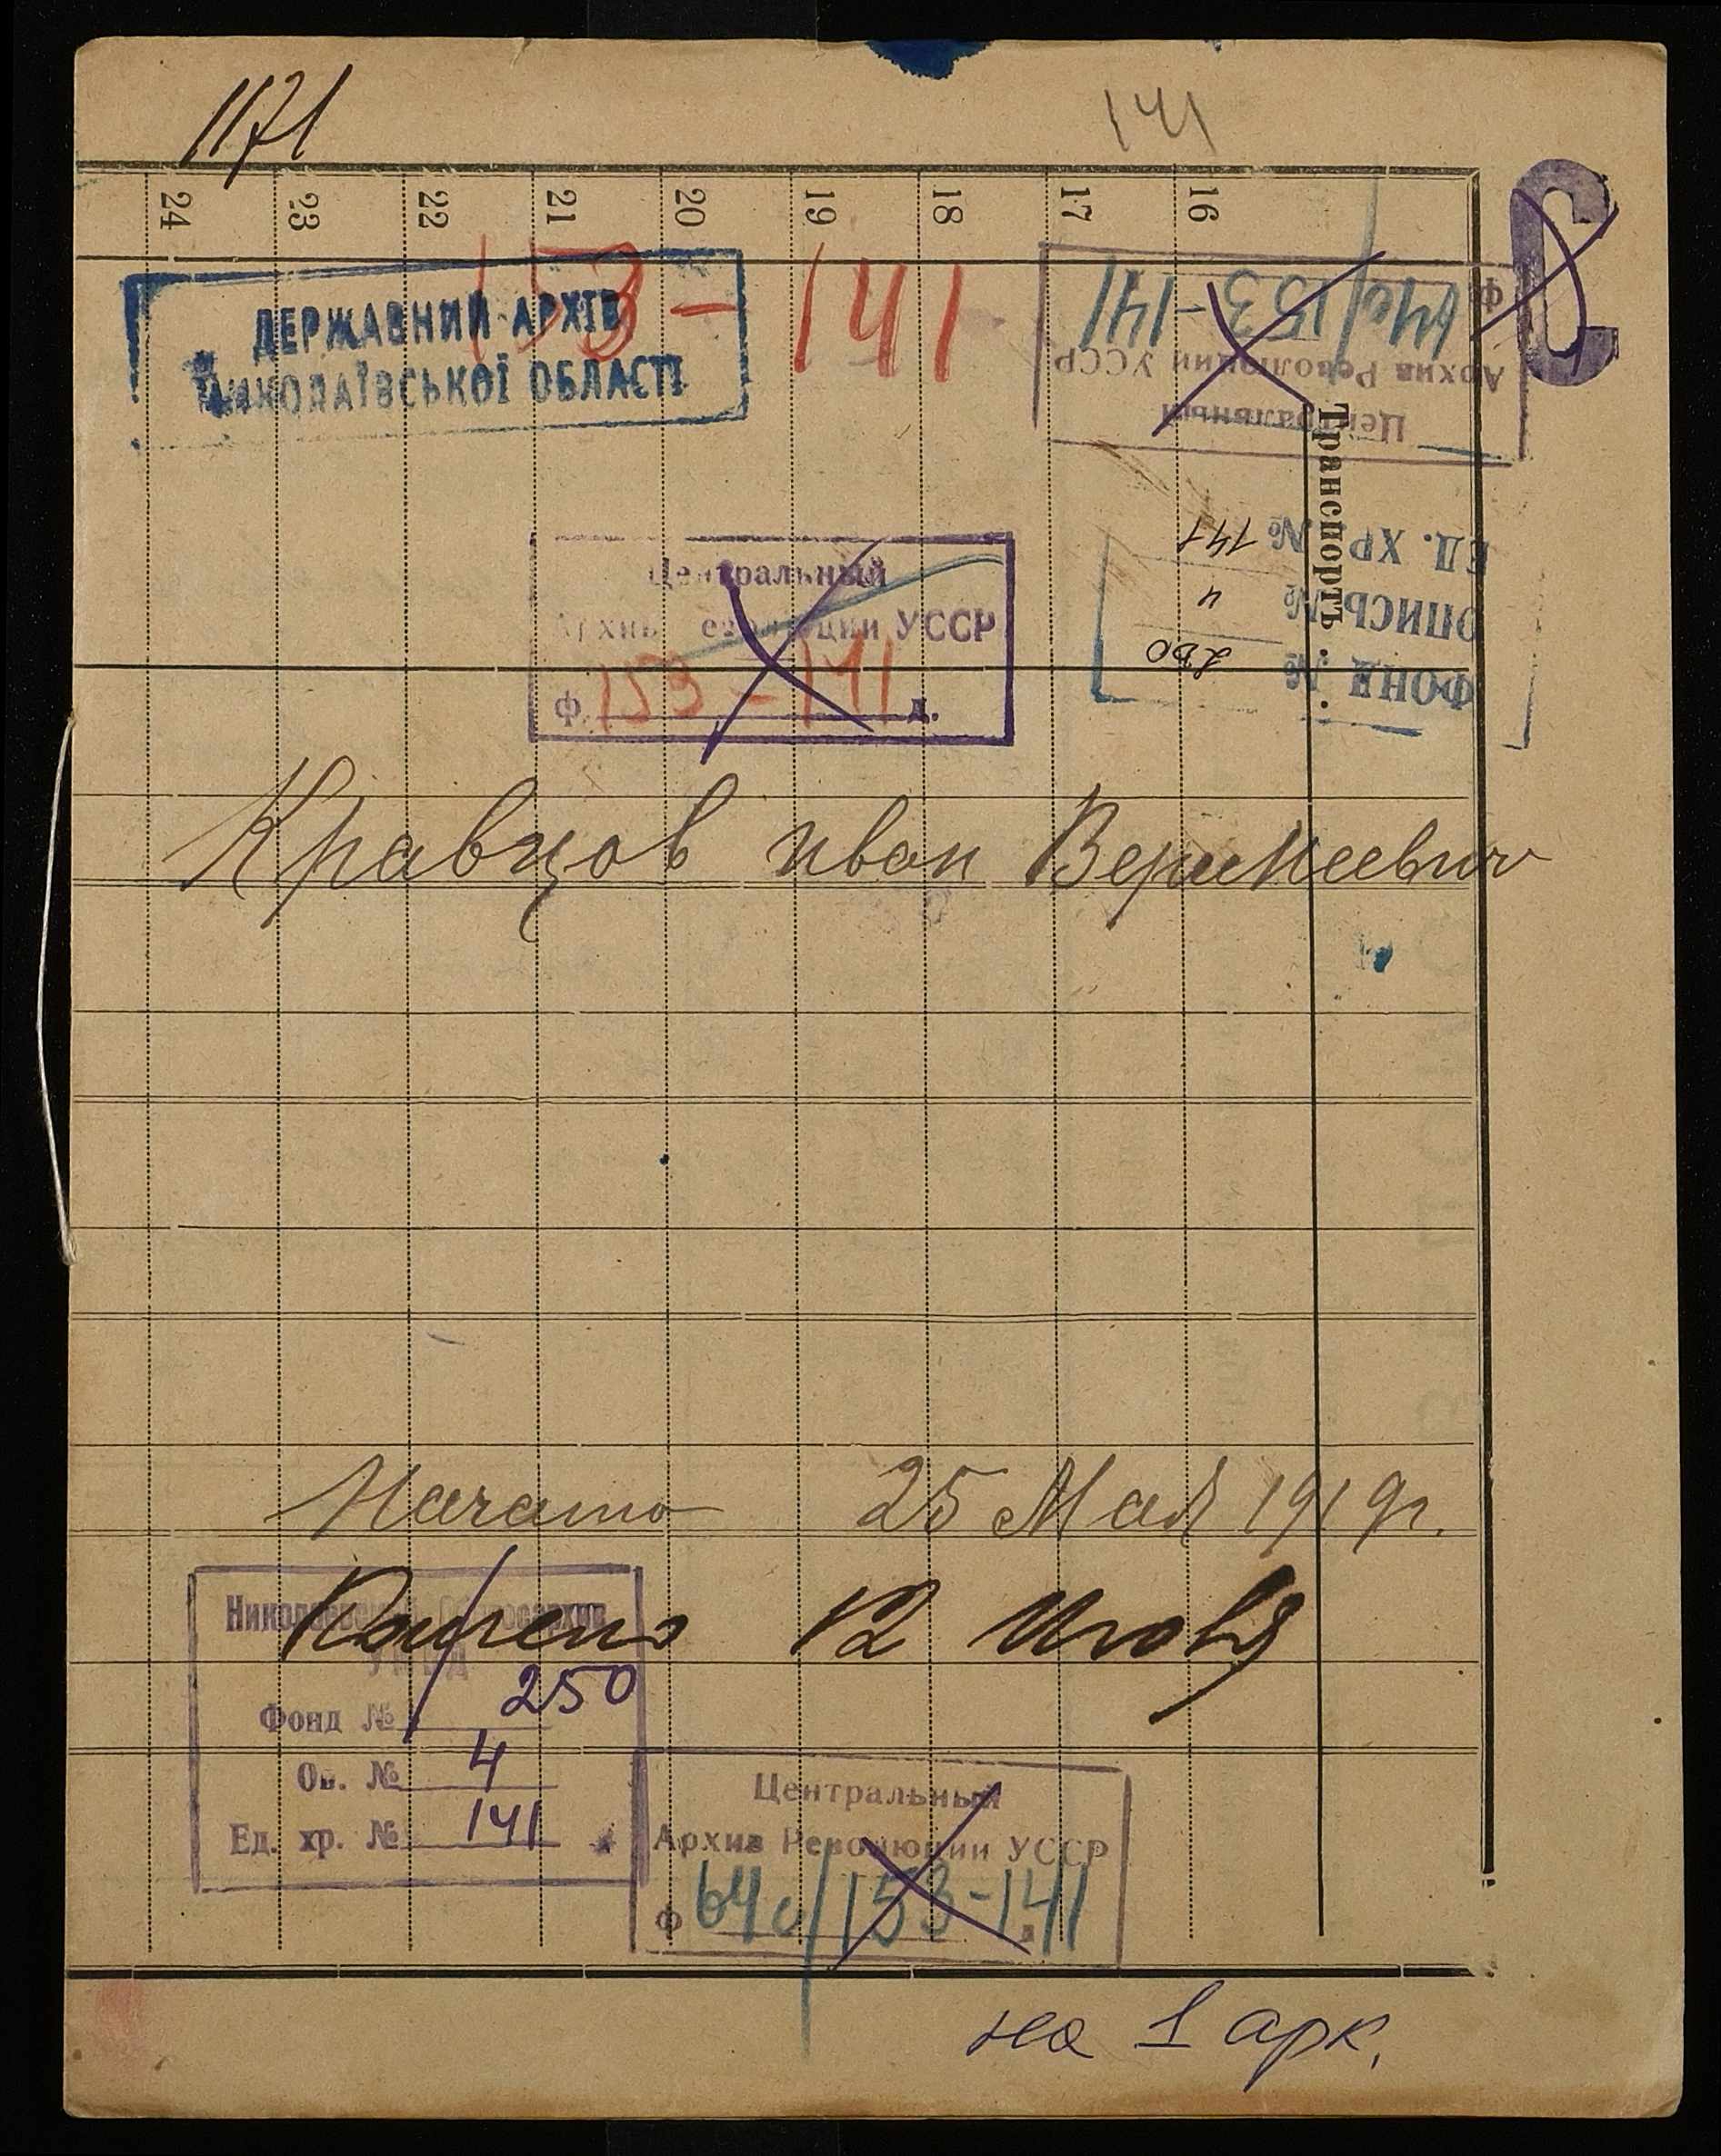 1171
141
24 23 22 21 20 19 18 17 16
153 - 141
ДЕРЖАВНИЙ АРХІВ
МИКОЛАЇВСЬКОЇ ОБЛАСТІ
Центральный
Архив Революции УССР
ф. 64с/153-141
Транспортъ . .
ФОНД № 250
ОПИСЬ № 4
ЕД. ХР. № 141
Центральный
Архив Революции УССР
ф. 153-141 д.
Кравцов Иван
Начато 25 Мая 1919 г.
12
Николаевский Облгосархив
Фонд № 250
Оп. № 4
Ед. хр. № 141
Центральный
Архив Революции УССР
ф 64с/153-141
на 1 арк.